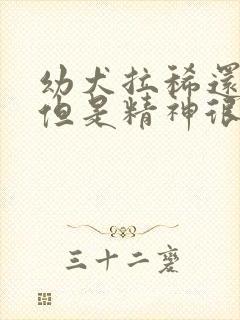 幼犬拉稀還
但是精神很
三十二麐